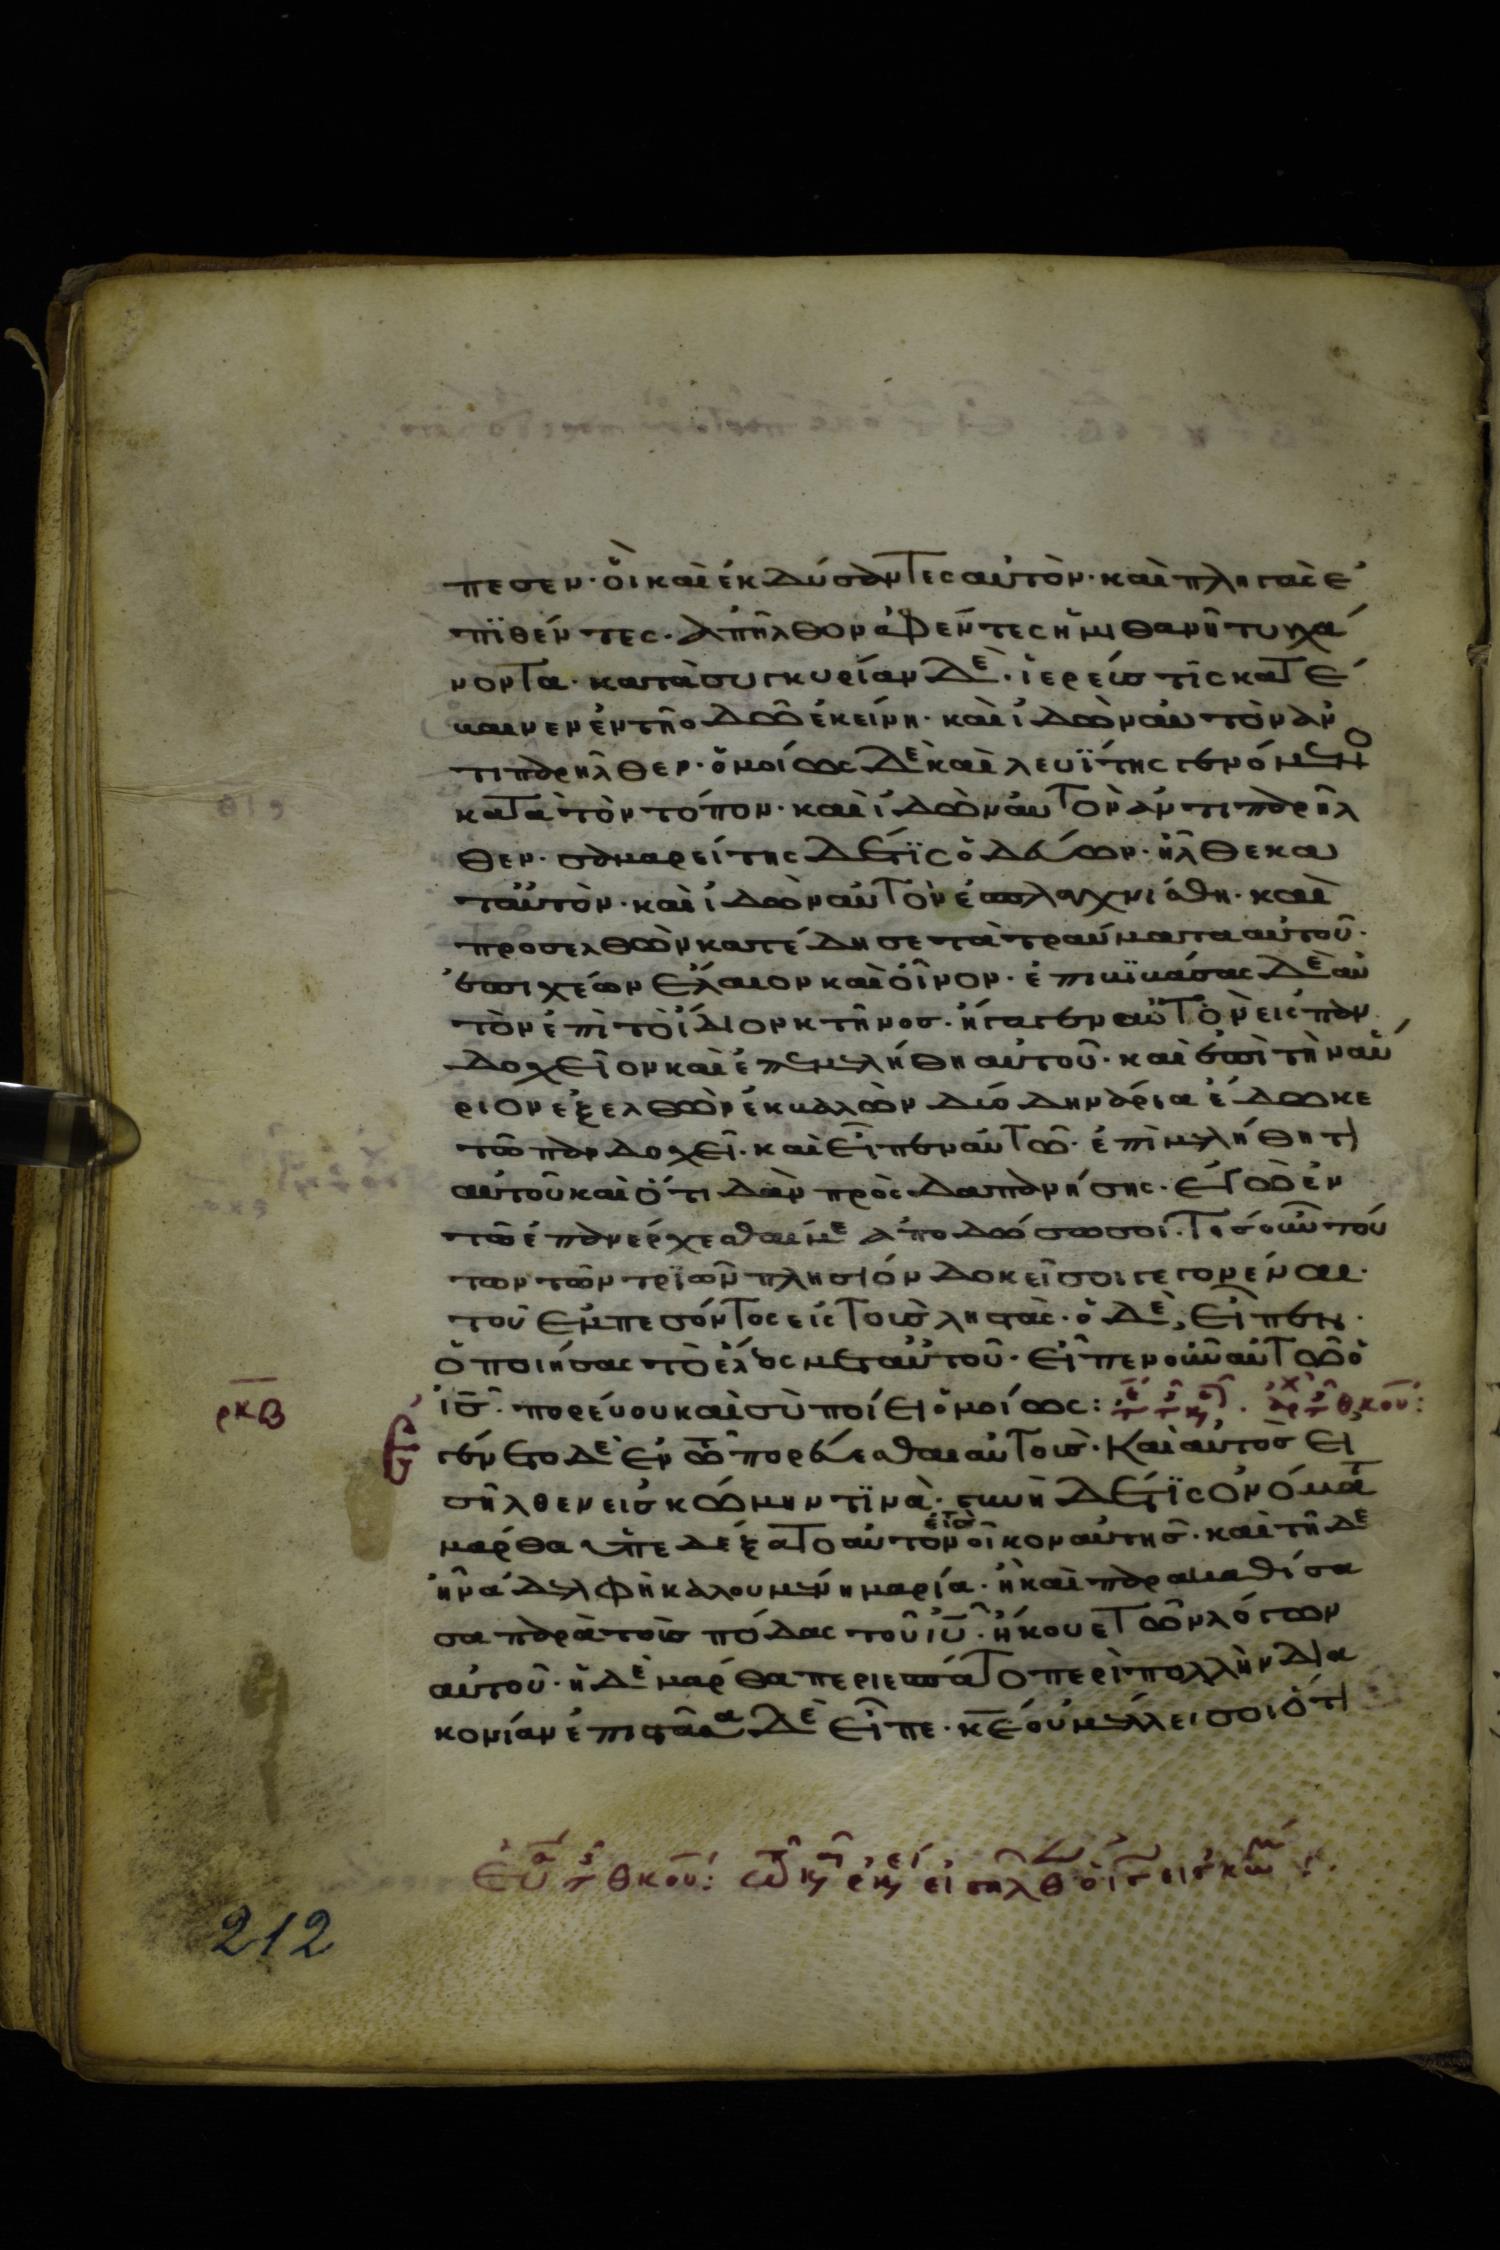 πεσεν· ὃι καὶ ἐκδύσαντες αὐτὸν· καὶ πληγὰς ἐ
πϊθέντες· ἀπῆλθον ἀφέντες ἡμιθανῆ τυγχά
νοντα· κατὰ συγκυρίαν δὲ· ἱερεύς τίς κατέ
βαινεν ἐν τῆ ὁδῶ ἐκείνη· καὶ ἰδὼν αὐτὸν ἀν
τιπαρῆλθεν· ὁμοίως δὲ καὶ λευΐτης γενόμενο
κατὰ τὸν τόπον· καὶ ἰδὼν αὐτὸν ἀντιπαρῆλ
θεν· σαμαρείτης δέ τϊς ὁδεύων· ἦλθε κα
τ αὐτὸν· καὶ ἰδὼν αὐτὸν ἐσπλαγχνίσθη· καὶ
προσελθὼν κατέδησε τὰ τραύματα αὐτοῦ·
ἐπιχέων ἔλαιον καὶ οἶνον· ἐπιβϊβάσας δὲ αὐ
τὸν ἐπὶ τὸ ἴδιον κτῆνος· ἤγαγεν αὐτὸν εἰς παν
δοχεῖον καὶ ἐπεμελήθη αὐτοῦ· καὶ ἐπὶ τὴν αὔ
ριον ἐξελθὼν ἐκβαλὼν δύο δηνάρια ἔδωκε
τῶ πανδοχεῖ· καὶ εἶπεν αὐτῶ· ἐπιμελήθητι
αὐτοῦ καὶ ὅτι δὰν πρὸς δαπανήσης· ἐγὼ ἐν
τῶ ἐπανέρχεσθαί με ἀποδώσω σοι· τίς οὖν τού
των τῶν τρϊῶν πλησίον δοκεῖ σοι γεγονέναι·
τοῦ ἐμπεσόντος εἰς τοὺς ληστὰς· ὁ δὲ, εἶπεν·
ὁ ποιήσας τὸ ἔλεος μετ αὐτοῦ· εἶπεν οὖν αὐτῶ ὁ
ἰς̄· πορεύου καὶ σὺ ποίει ὁμοίως:
ρκβ
ἐγένετο δὲ ἐν τῶ πορεύεσθαι αὐτοὺς· Καὶ αὐτὸς εἰ
σῆλθεν εἰς κώμην τϊνὰ· γυνὴ δέ τϊς ὀνόματ
μάρθα ὑπεδέξατο αὐτὸν εἰς τὸν οἶκον αὐτῆς· καὶ τῆδε
ἦν ἀδελφὴ καλουμένη μαρία· ἣ καὶ παρακαθίσα
σα παρὰ τοὺς πόδας τοῦ ἰῡ· ἤκουε τῶν λόγων
αὐτοῦ· ἡ δὲ μάρθα περιεσπάτο περὶ πολλὴν δια
κονίαν ἐπιστᾶσα δὲ εἶπε· κ̄ε οὐ μέλλει σοι ὅτι
212